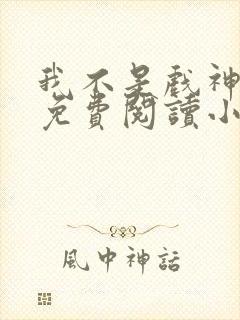 我不是戲神
免費閱讀小
風中神話